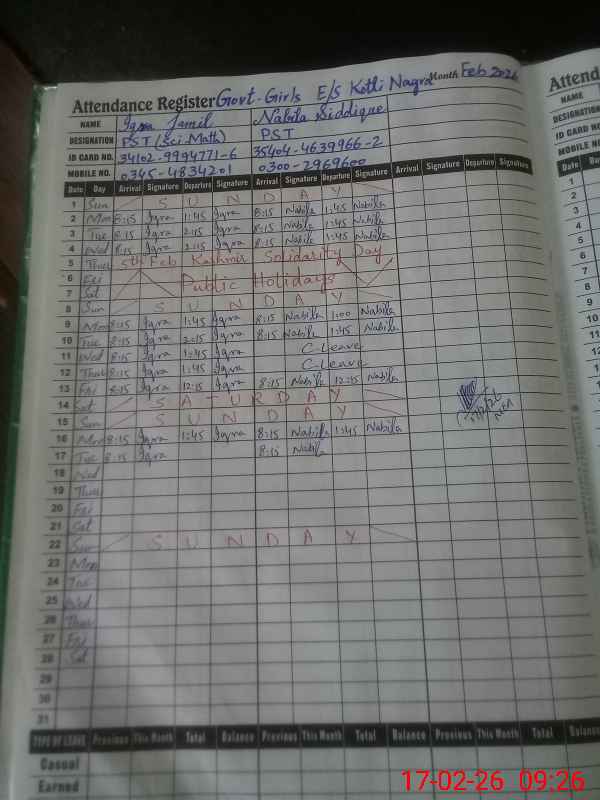 Attendance Register Govt. Girls E/S Kotli Nagra Month Feb 2026
NAME Iqra Jamil Nabila Siddique
DESIGNATION PST (Sci-Math) PST
ID CARD NO. 34102-9994771-6 35404-4639966-2
MOBILE NO. 0345-4834201 0300-2969600
Date Day Arrival Signature Departure Signature Arrival Signature Departure Signature Arrival Signature Departure Signature
1 Sun S U N D A Y
2 Mon 8:15 Iqra 1:45 Iqra 8:15 Nabila 1:45 Nabila
3 Tue 8:15 Iqra 2:15 Iqra 8:15 Nabila 1:45 Nabila
4 Wed 8:15 Iqra 2:15 Iqra 8:15 Nabila 1:45 Nabila
5 Thur 5th Feb Kashmir Solidarity Day
6 Fri Public Holidays
7 Sat
8 Sun S U N D A Y
9 Mon 8:15 Iqra 1:45 Iqra 8:15 Nabila 1:00 Nabila
10 Tue 8:15 Iqra 2:15 Iqra 8:15 Nabila 1:45 Nabila
11 Wed 8:15 Iqra 1:45 Iqra C-Leave
12 Thur 8:15 Iqra 1:45 Iqra C-Leave
13 Fri 8:15 Iqra 12:15 Iqra 8:15 Nabila 12:15 Nabila
14 Sat S A T U R D A Y
15 Sun S U N D A Y
16 Mon 8:15 Iqra 1:45 Iqra 8:15 Nabila 1:45 Nabila
17 Tue 8:15 Iqra 8:15 Nabila
18 Wed
19 Thur
20 Fri
21 Sat
22 Sun S U N D A Y
23 Mon
24 Tue
25 Wed
26 Thur
27 Fri
28 Sat
29
30
31
TYPE OF LEAVE Previous This Month Total Balance Previous This Month Total Balance Previous This Month Total Balance
Casual
Earned
Attend
NAME
DESIGNATION
ID CARD NO.
MOBILE NO.
Date Day
1
2
3
4
5
6
7
8
9
10
11
12
13
14
15
16
17
18
19
20
21
22
23
24
25
26
27
28
29
30
31
17-02-26 09:26